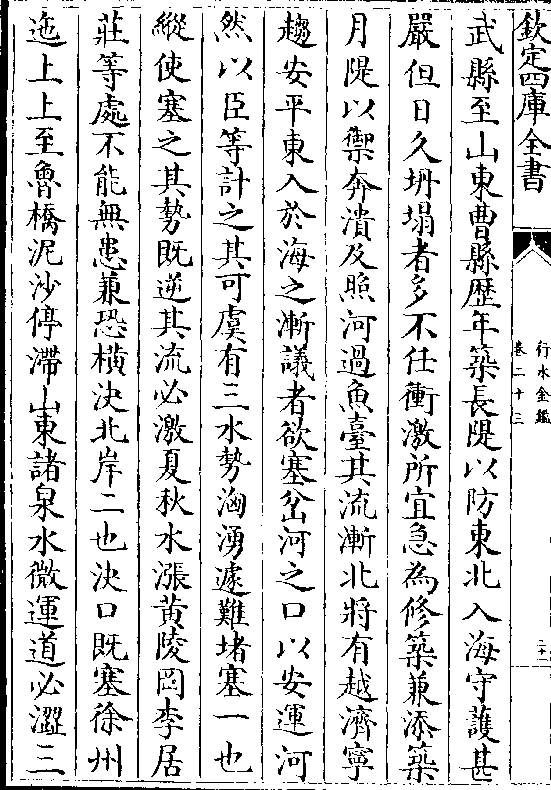 欽定四庫全書
行水金鑑
卷二十三
武縣至山東曹縣歷年築長隄以防東北入海守護甚
嚴但日久坍塌者多不任衝激所宜急為修築兼添築
月隄以禦奔潰及照河過魚臺其流漸北將有越濟寧
趨安平東入於海之漸議者欲塞岔河之口以安運河
然以臣等計之其可虞有三水勢洶湧遽難堵塞一也
縱使塞之其勢既逆其流必激夏秋水漲黃陵岡李居
莊等處不能無患兼恐橫決北岸二也決口既塞徐州
迤上上至魯橋泥沙停滯山東諸泉水微運道必澀三